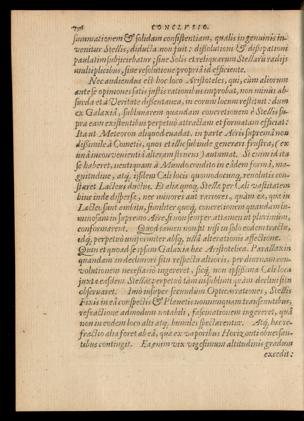 796 CONCLVSIO.
summationem & solidam consistentiam, qualis in genuinis in-
venitur Stellis, deducta non fuit: dissolutioni & dissipationi
paulatim subjiciebatur; sine Solis et reliquarum Stellarum radijs
multiplicibus, sine resolutione propria id efficiente.
Nec audiendus est hoc loco Aristoteles, qui, cùm aliorum
ante se opiniones satis justis rationibus improbat, non minus ab-
surda et à Veritate dissentanea, in eorum locum restituit: dum
ex Galaxia, sublunarem quandam concretionem è Stellis su-
pra eam existentibus perpetuò attractam et formatam efficiat:
Ita ut Meteoron aliquod evadat, in parte Aëris suprema non
dissimile à Cometis, quos et ille subinde generari frustra, (ex
una inconvenienti aliena astruens) autumat. Si enim id ita
se haberet, neutiquam à Mundi exordio in eadem forma, ma-
gnitudine, atq; ijsdem Cæli locis quomodocunq; revolutis con-
staret Lacteus ductus. Et aliæ quoq; Stellæ per Cæli vastitatem
hinc inde dispersæ, nec minores aut rariores, quàm eæ, quæ in
Lacteo sunt ambitu, similiter quoq; concretionem quandam lu-
minosam in supremo Aëre, si non semper, attamen ut plurimùm,
conformarent. Quod tamen non sit nisi in solo eodem tractu,
idq; perpetuò uniformiter absq; ulla alteratione aut defectione.
Quin et quod se ipsam Galaxia hæc Aristotelica Parallaxin
quandam in declinatiori situ respectu altioris, per diurnam con-
volutionem necessariò ingereret, sicq; non ipsissima Cæli loca
juxta easdem Stellas perpetuò tam in sublimi quàm declivi situ
observaret. Imò insuper secundùm Opticas rationes, Stellis
Fixis in ea conspectis & Planetis nonnunquam transeuntibus,
refractione admodum notabili, fascinationem ingereret, quà
non in eodem loco alti atq; humiles spectarentur. Atq; hæc re-
fractio alia foret ab ea, quæ ex vaporibus Horizonti obversan-
tibus contingit. Ea enim vix vigesimum altitudinis gradum
excedit: